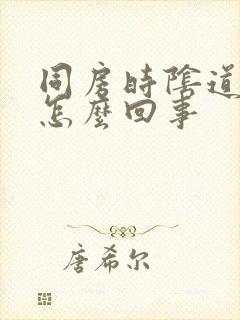 同房时陰道
怎麼回事
唐希尔